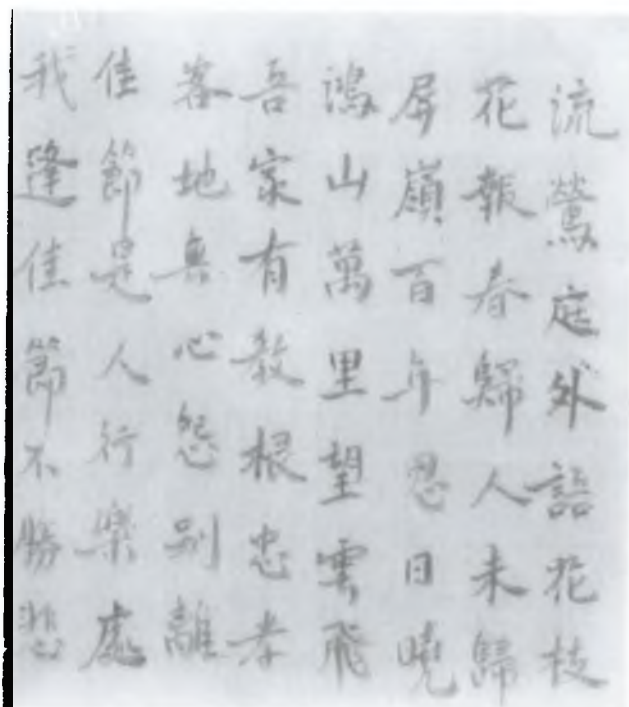 流鶯庭外語花枝
花報春歸人未歸
屏嶺百年忍日曉
鴻山萬里望雲飛
吾家有教根忠孝
客地無心怨別離
佳節是人行樂處
我逢佳節不勝悲